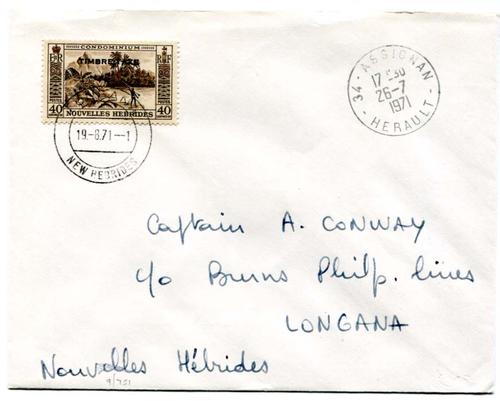 CONDOMINIUM
E R TIMBRE-TAXE R F
40 NOUVELLES HEBRIDES 40
19-8.71--1
NEW HEBRIDES
34 - ASSIGNAN
17 H30
26-7
1971
- HERAULT -
Captain A. CONWAY
c/o Burns Philp. lines
LONGANA
Nouvelles Hébrides